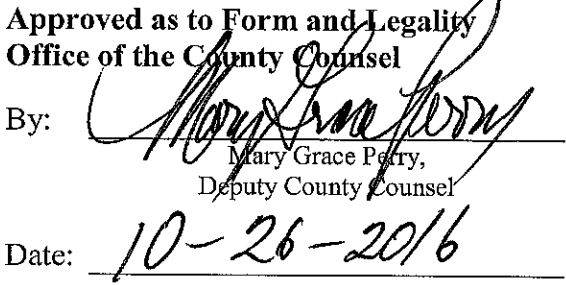 Approved as to Form and Legality
Office of the County Counsel
By: Mary Grace Perry
Mary Grace Perry,
Deputy County Counsel
Date: 10-26-2016